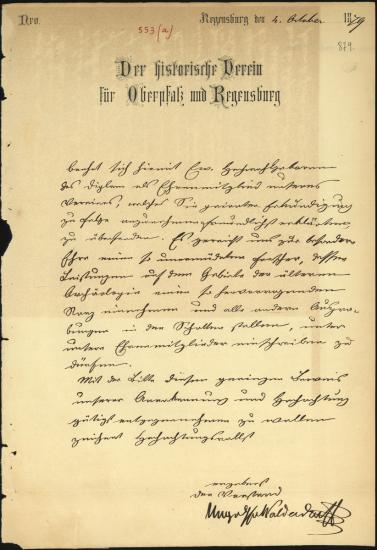 Nro.
553/(a)
Regensburg den 4. October 1879
879.
Der historische Verein
für Oberpfalz und Regensburg
beehrt sich hiermit Ew. Hochwohlgeboren
das Diplom als Ehrenmitglied unseres
Vereins, welches Sie privater Erkundigung
zu Folge anzunehmen freundlichst erklärten,
zu übersenden. Es gereicht uns zur besondern
Ehre einen so unermüdeten Forscher, dessen
Leistungen auf dem Gebiete der älteren
Archäologie einen so hervorragenden
Rang einnehmen und alle andern Ausgra-
bungen in den Schatten stellen, unter
unsere Ehrenmitglieder einschreiben zu
dürfen.
Mit der Bitte diesen geringen Beweis
unserer Anerkennung und Hochachtung
gütigst entgegennehmen zu wollen
zeichnet hochachtungsvollst
ergebenst
der Vorstand
Hugo Walderdorff